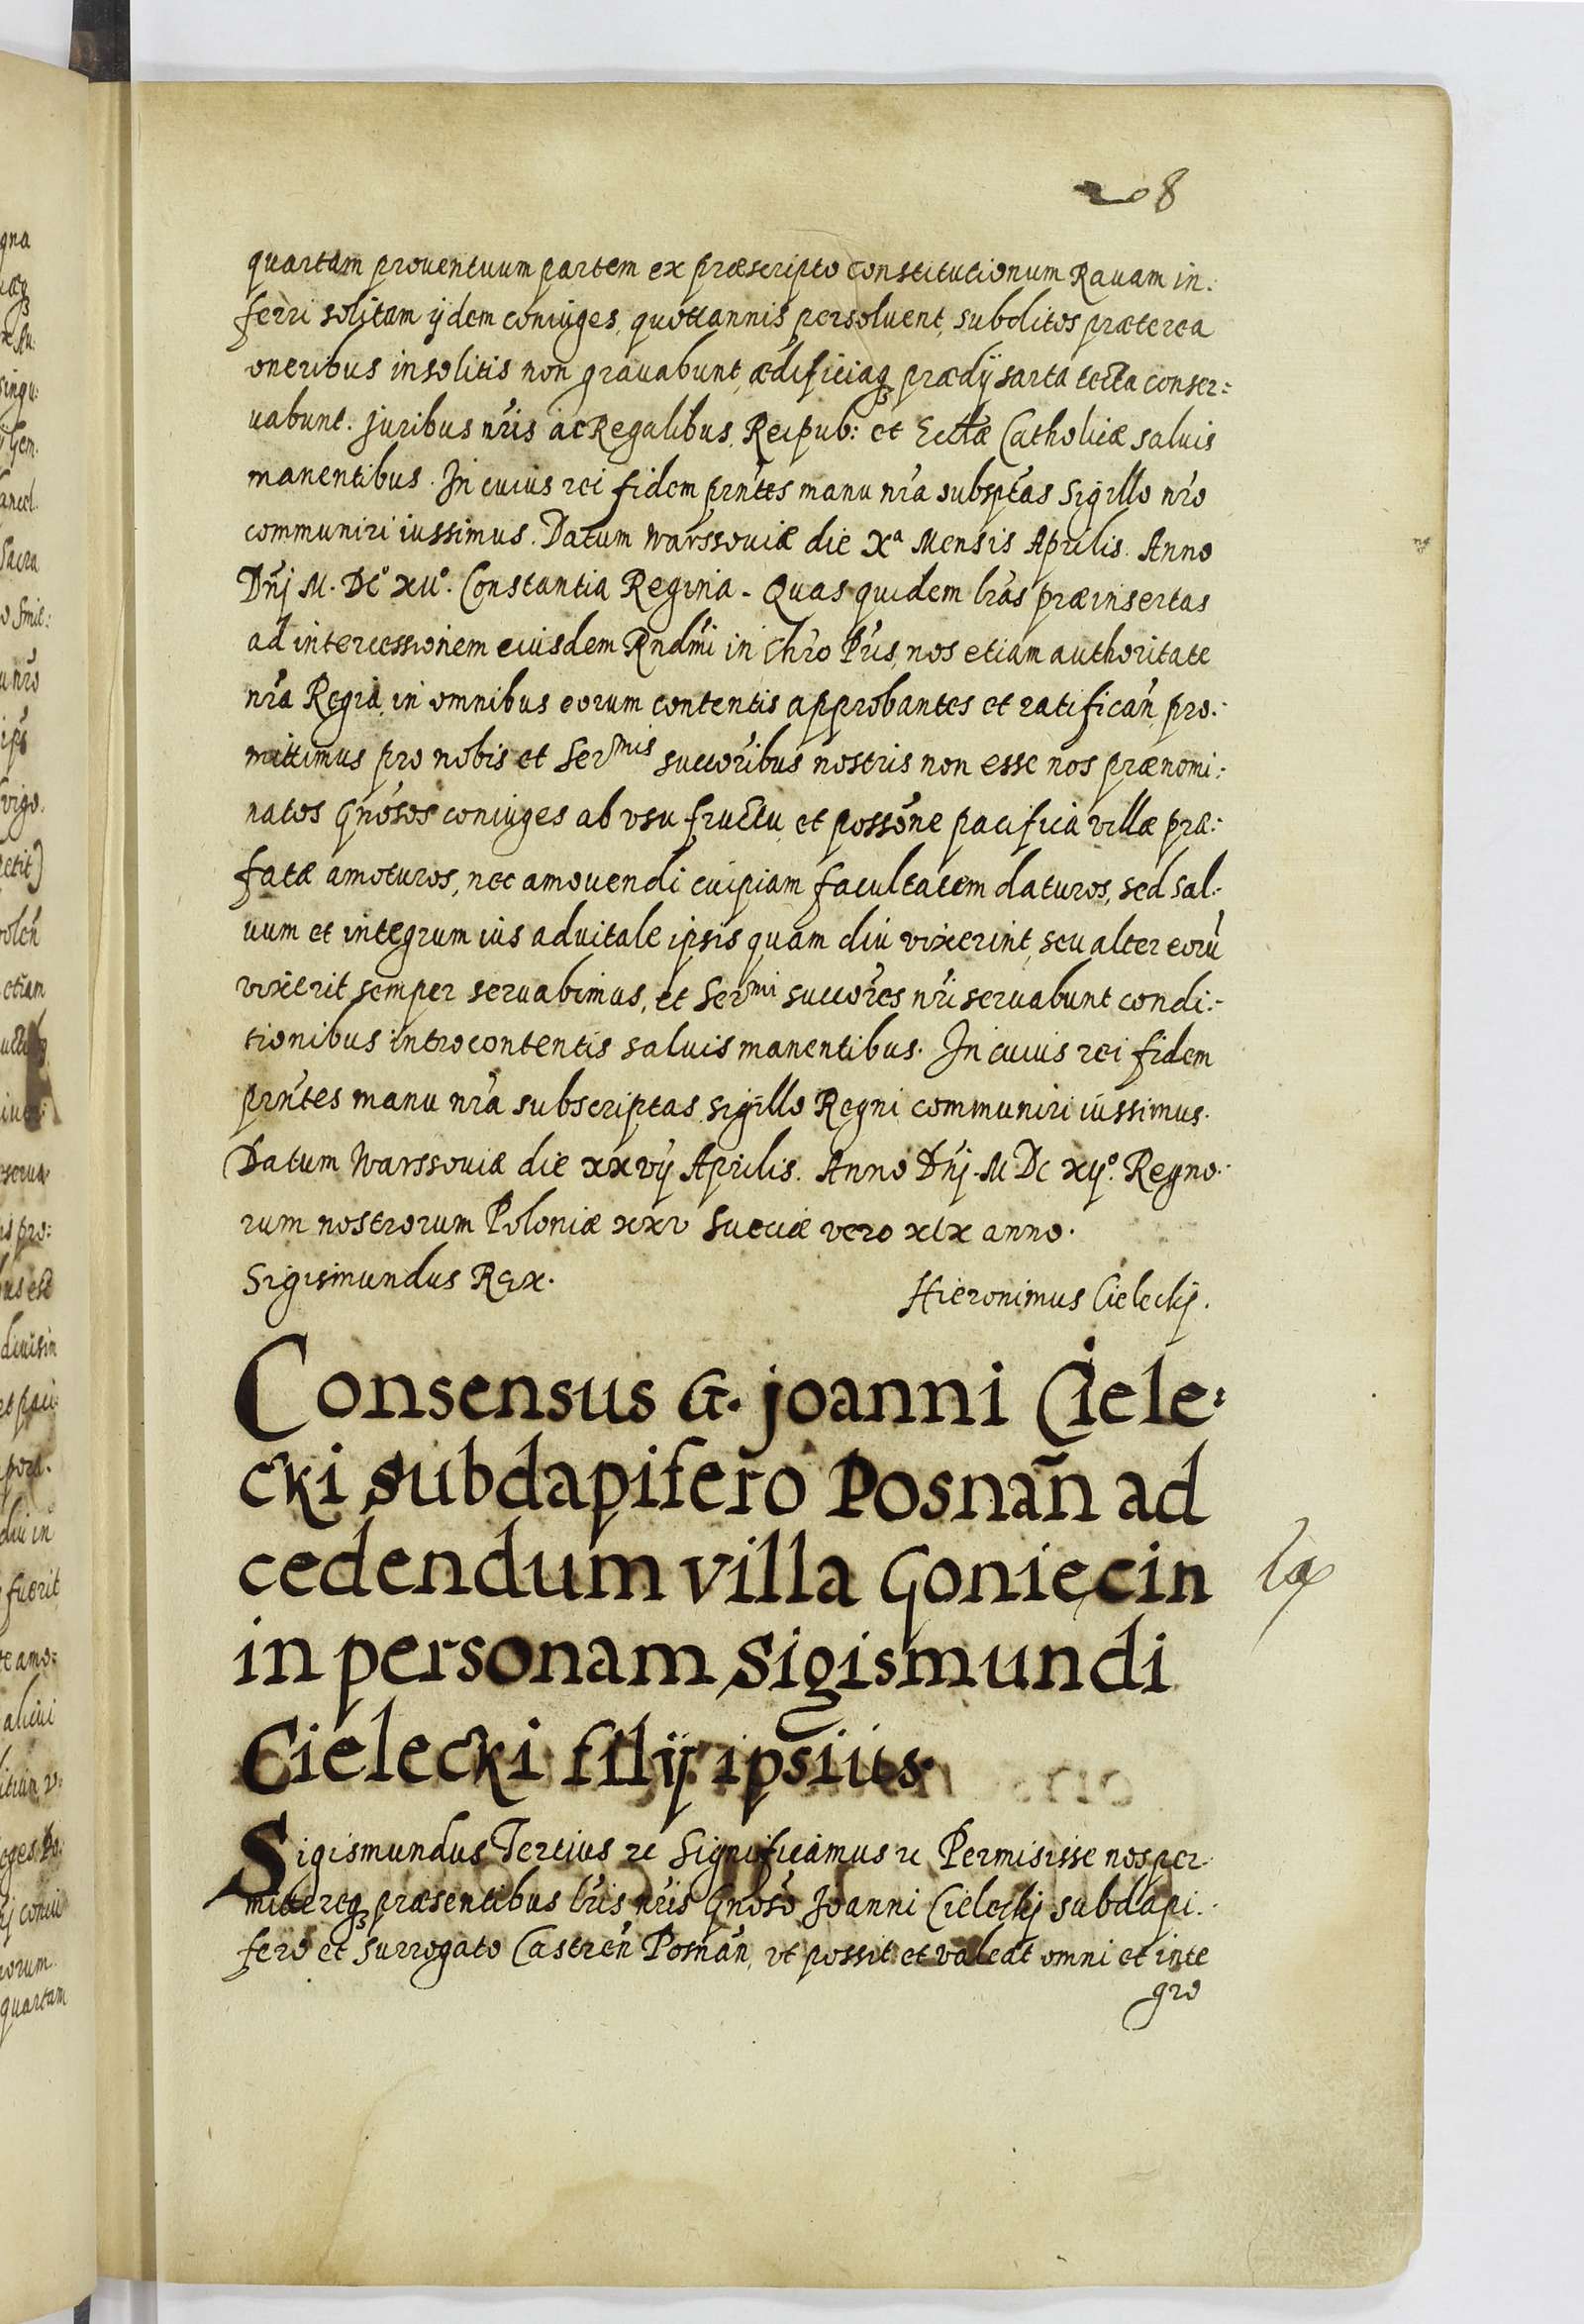 208
quartam prouentuum partem ex præscripto constitutionum Rauam in:
ferri solitam ÿdem coniuges, quottannis persoluent, subditos præterea
oneribus insolitis non grauabunt, ædificiaq₃ prædÿ sarta tecta conser:
uabunt. Juribus nr̃is ac Regalibus, Reipub: et Eccl̃æ Catholicæ saluis
manentibus. In cuius rei fidem prñtes manu nr̃a subsptãs Sigillo nr̃o
communiri iussimus. Datum Warssouiæ die Xª Mensis Aprilis. Anno
Dñj M. DC° XII°. Constantia Regina. Quas quidem lr̃as præinsertas
ad intercessionem eiusdem Rndm̃i in Chr̃o Pr̃is, nos etiam authoritate
nr̃a Regia, in omnibus eorum contentis approbantes et ratificañ, pro:
mittimus pro nobis et Serᵐⁱˢ succor̃ibus nostris non esse nos prænomi:
natos Gnõsos coniuges ab vsu fructu, et possõne pacifica villæ præ:
fatæ amoturos, nec amouendi cuipiam facultatem daturos, sed sal:
uum et integrum ius aduitale ipsis quam diu vixerint, seu alter eorũ
vixerit semper seruabimus, et Serᵐⁱ succor̃es nr̃i seruabunt condi:
tionibus introcontentis saluis manentibus. In cuius rei fidem
prñtes manu nr̃a subscriptas, sigillo Regni communiri iussimus.
Datum Warssouiæ die xxvÿ Aprilis. Anno Dñj. M DC xÿ°. Regno:
rum nostrorum Poloniæ xxv Sueciæ vero xix anno.
Sigismundus Rex.
Hieronimus Cieleckj.
Consensus G. Joanni Ciele:
cki subdapifero Posnañ ad
cedendum villa Gonięcin
in personam Sigismundi
Cielecki filÿ ipsius.
Sigismundus Tertius ꝛc Significamus ꝛc Permisisse nos per:
mittereq₃ præsentibus lr̃is nr̃is Gnõso Joanni Cieleckj subdapi:
fero et surrogato Castreñ Posnañ, vt possit et valeat omni et inte
gro